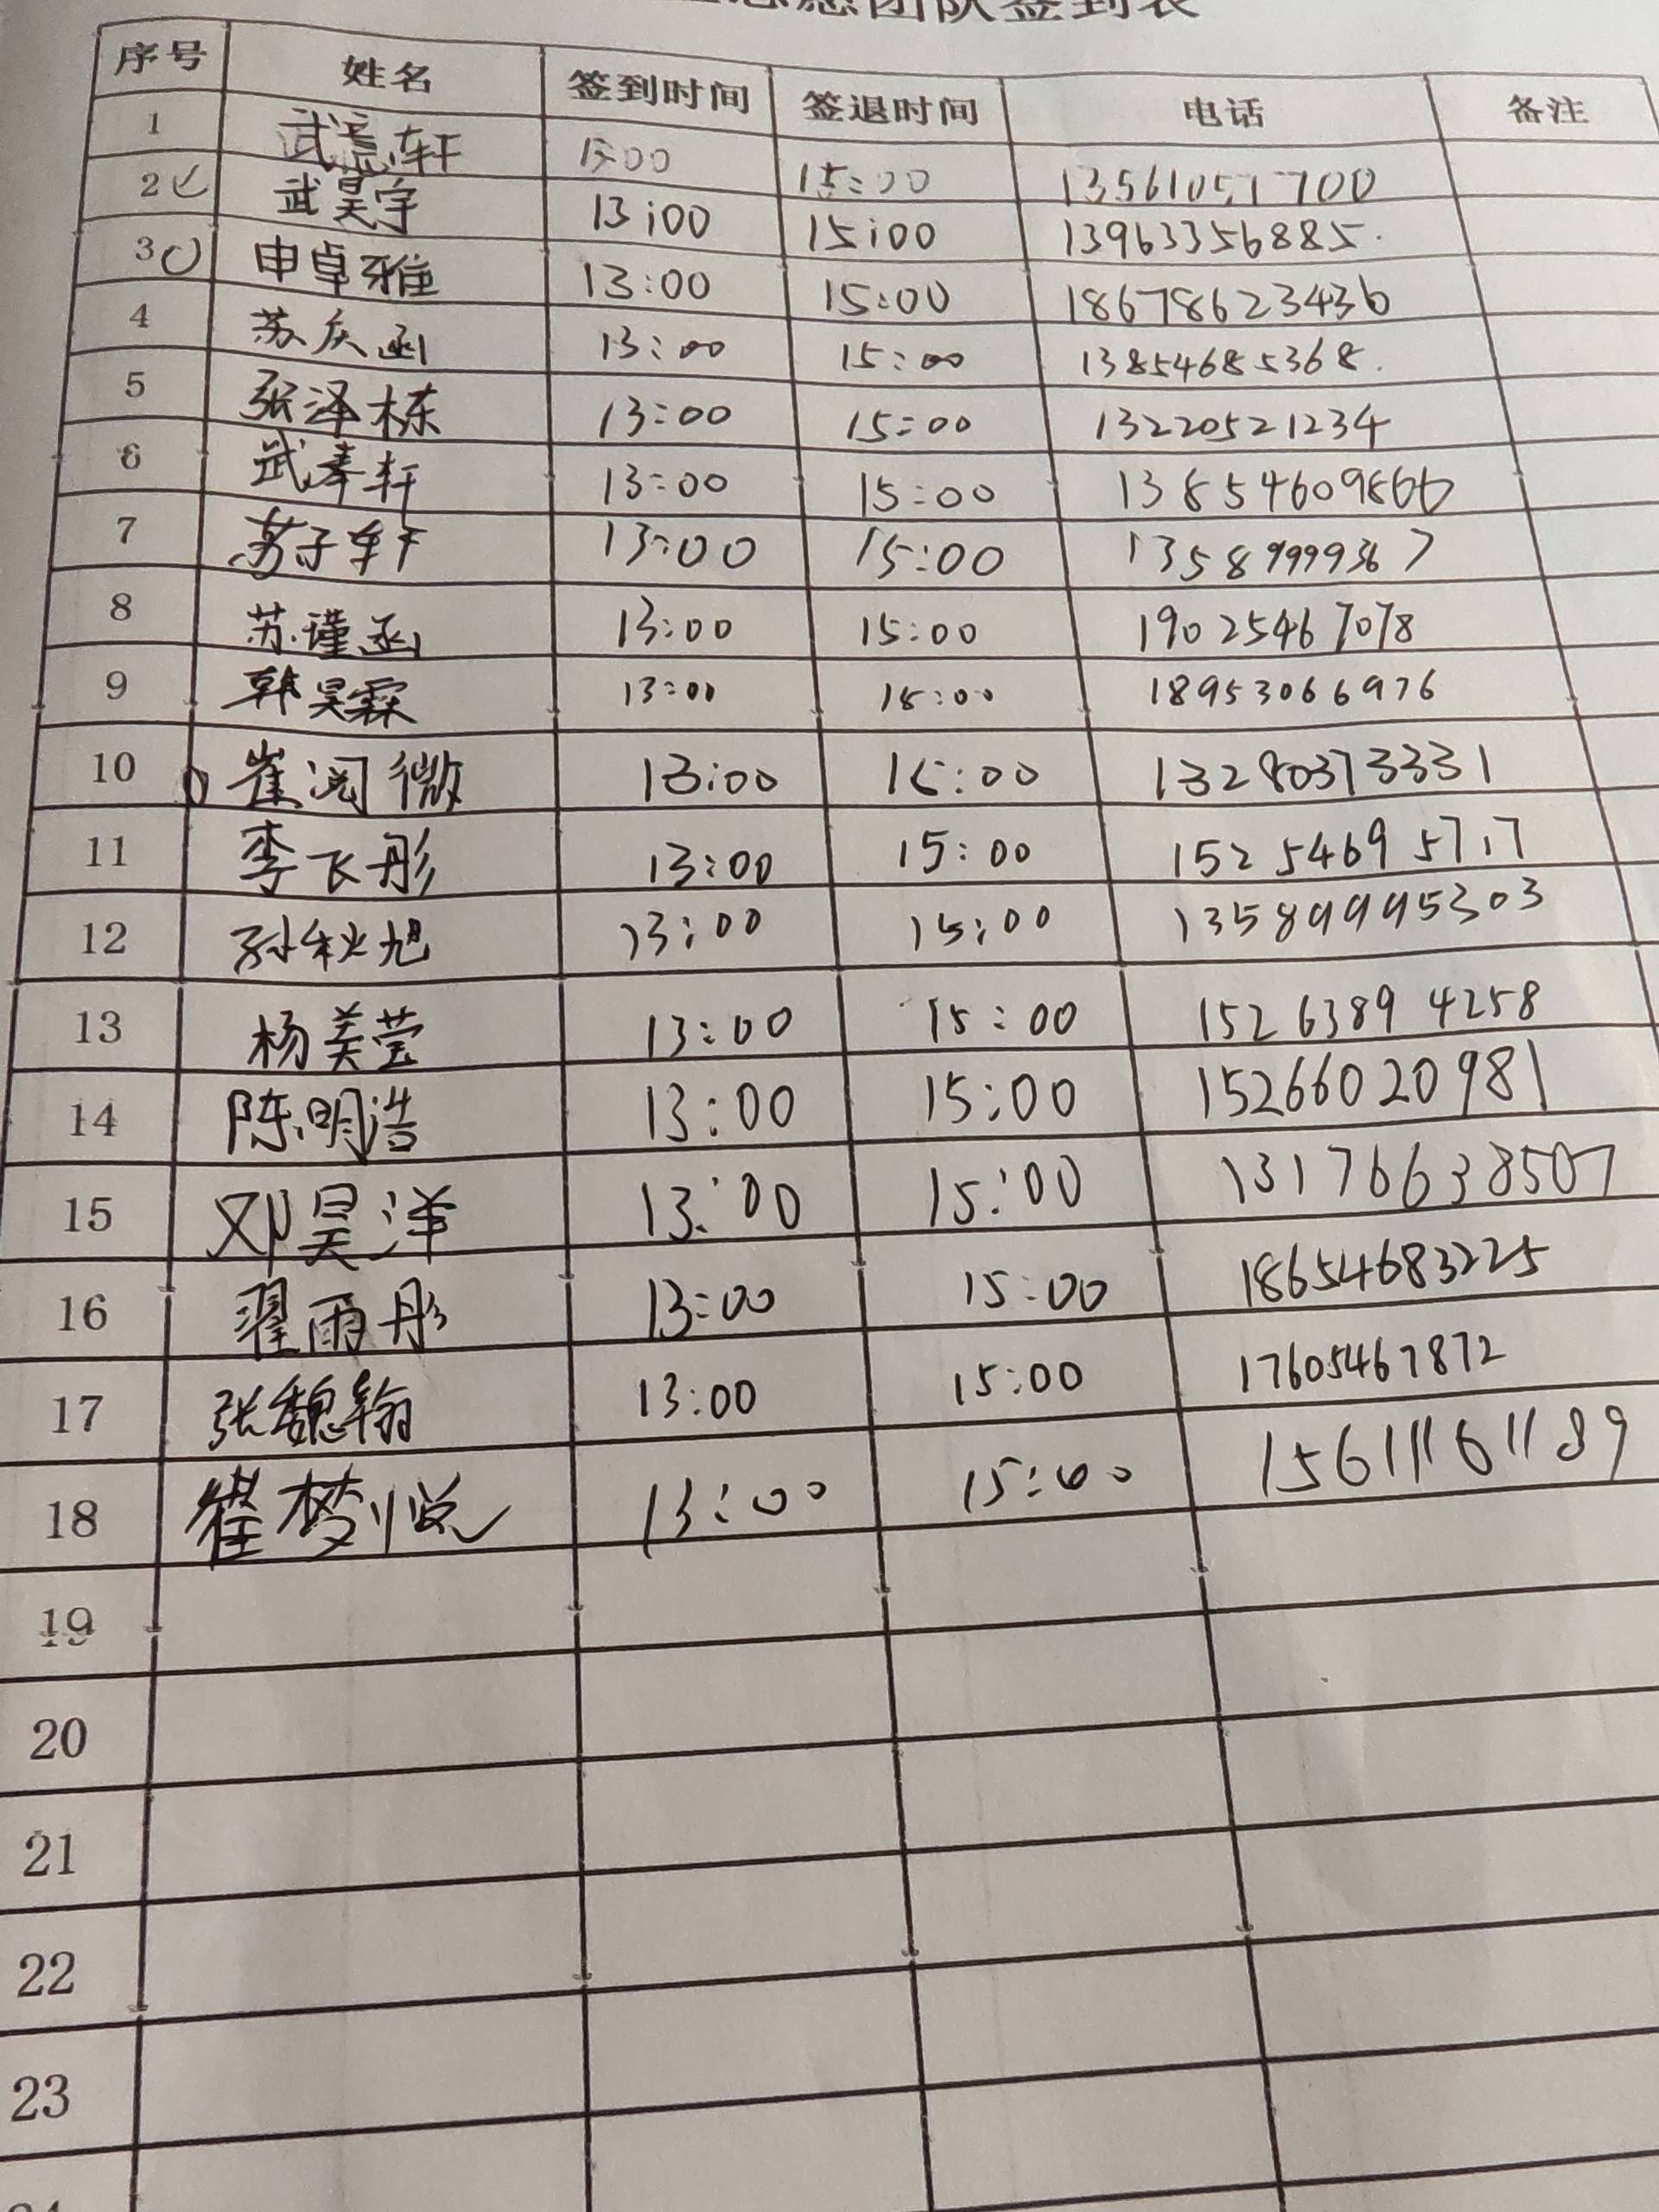 团队签到表
序号 姓名 签到时间 签退时间 电话 备注
1 武 轩 13:00 15:00 13561051700
2 武昊宇 13:00 15:00 13963356885.
3 申卓雅 13:00 15:00 18678623436
4 苏庆函 13:00 15:00 13854685368.
5 张泽栋 13:00 15:00 13220521234
6 武奉轩 13:00 15:00 13854609866
7 苏子轩 13:00 15:00 13589999367
8 苏瑾函 13:00 15:00 19025467078
9 韩昊霖 13:00 15:00 18953066976
10 崔阅微 13:00 15:00 13280373331
11 李飞彤 13:00 15:00 15254695717
12 孙秋旭 13:00 15:00 13589995303
13 杨美莹 13:00 15:00 15263894258
14 陈明浩 13:00 15:00 15266020981
15 邓昊洋 13:00 15:00 13176638507
16 翟雨彤 13:00 15:00 18654683225
17 张魏翰 13:00 15:00 17605467872
18 崔梦悦 13:00 15:00 15611161189
19
20
21
22
23